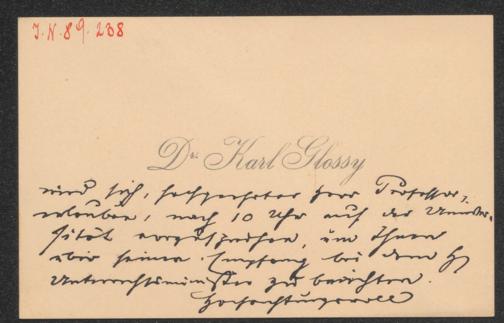 J.N. 89.238
Dr. Karl Glossy
wird sich, hochgeehrter Herr Professor,
erlauben, nach 10 Uhr auf der Univer-
sität vorzusprechen, um Ihnen
über seinen Empfang bei dem H
Unterrichtsminister zu berichten.
Hochachtungsvoll